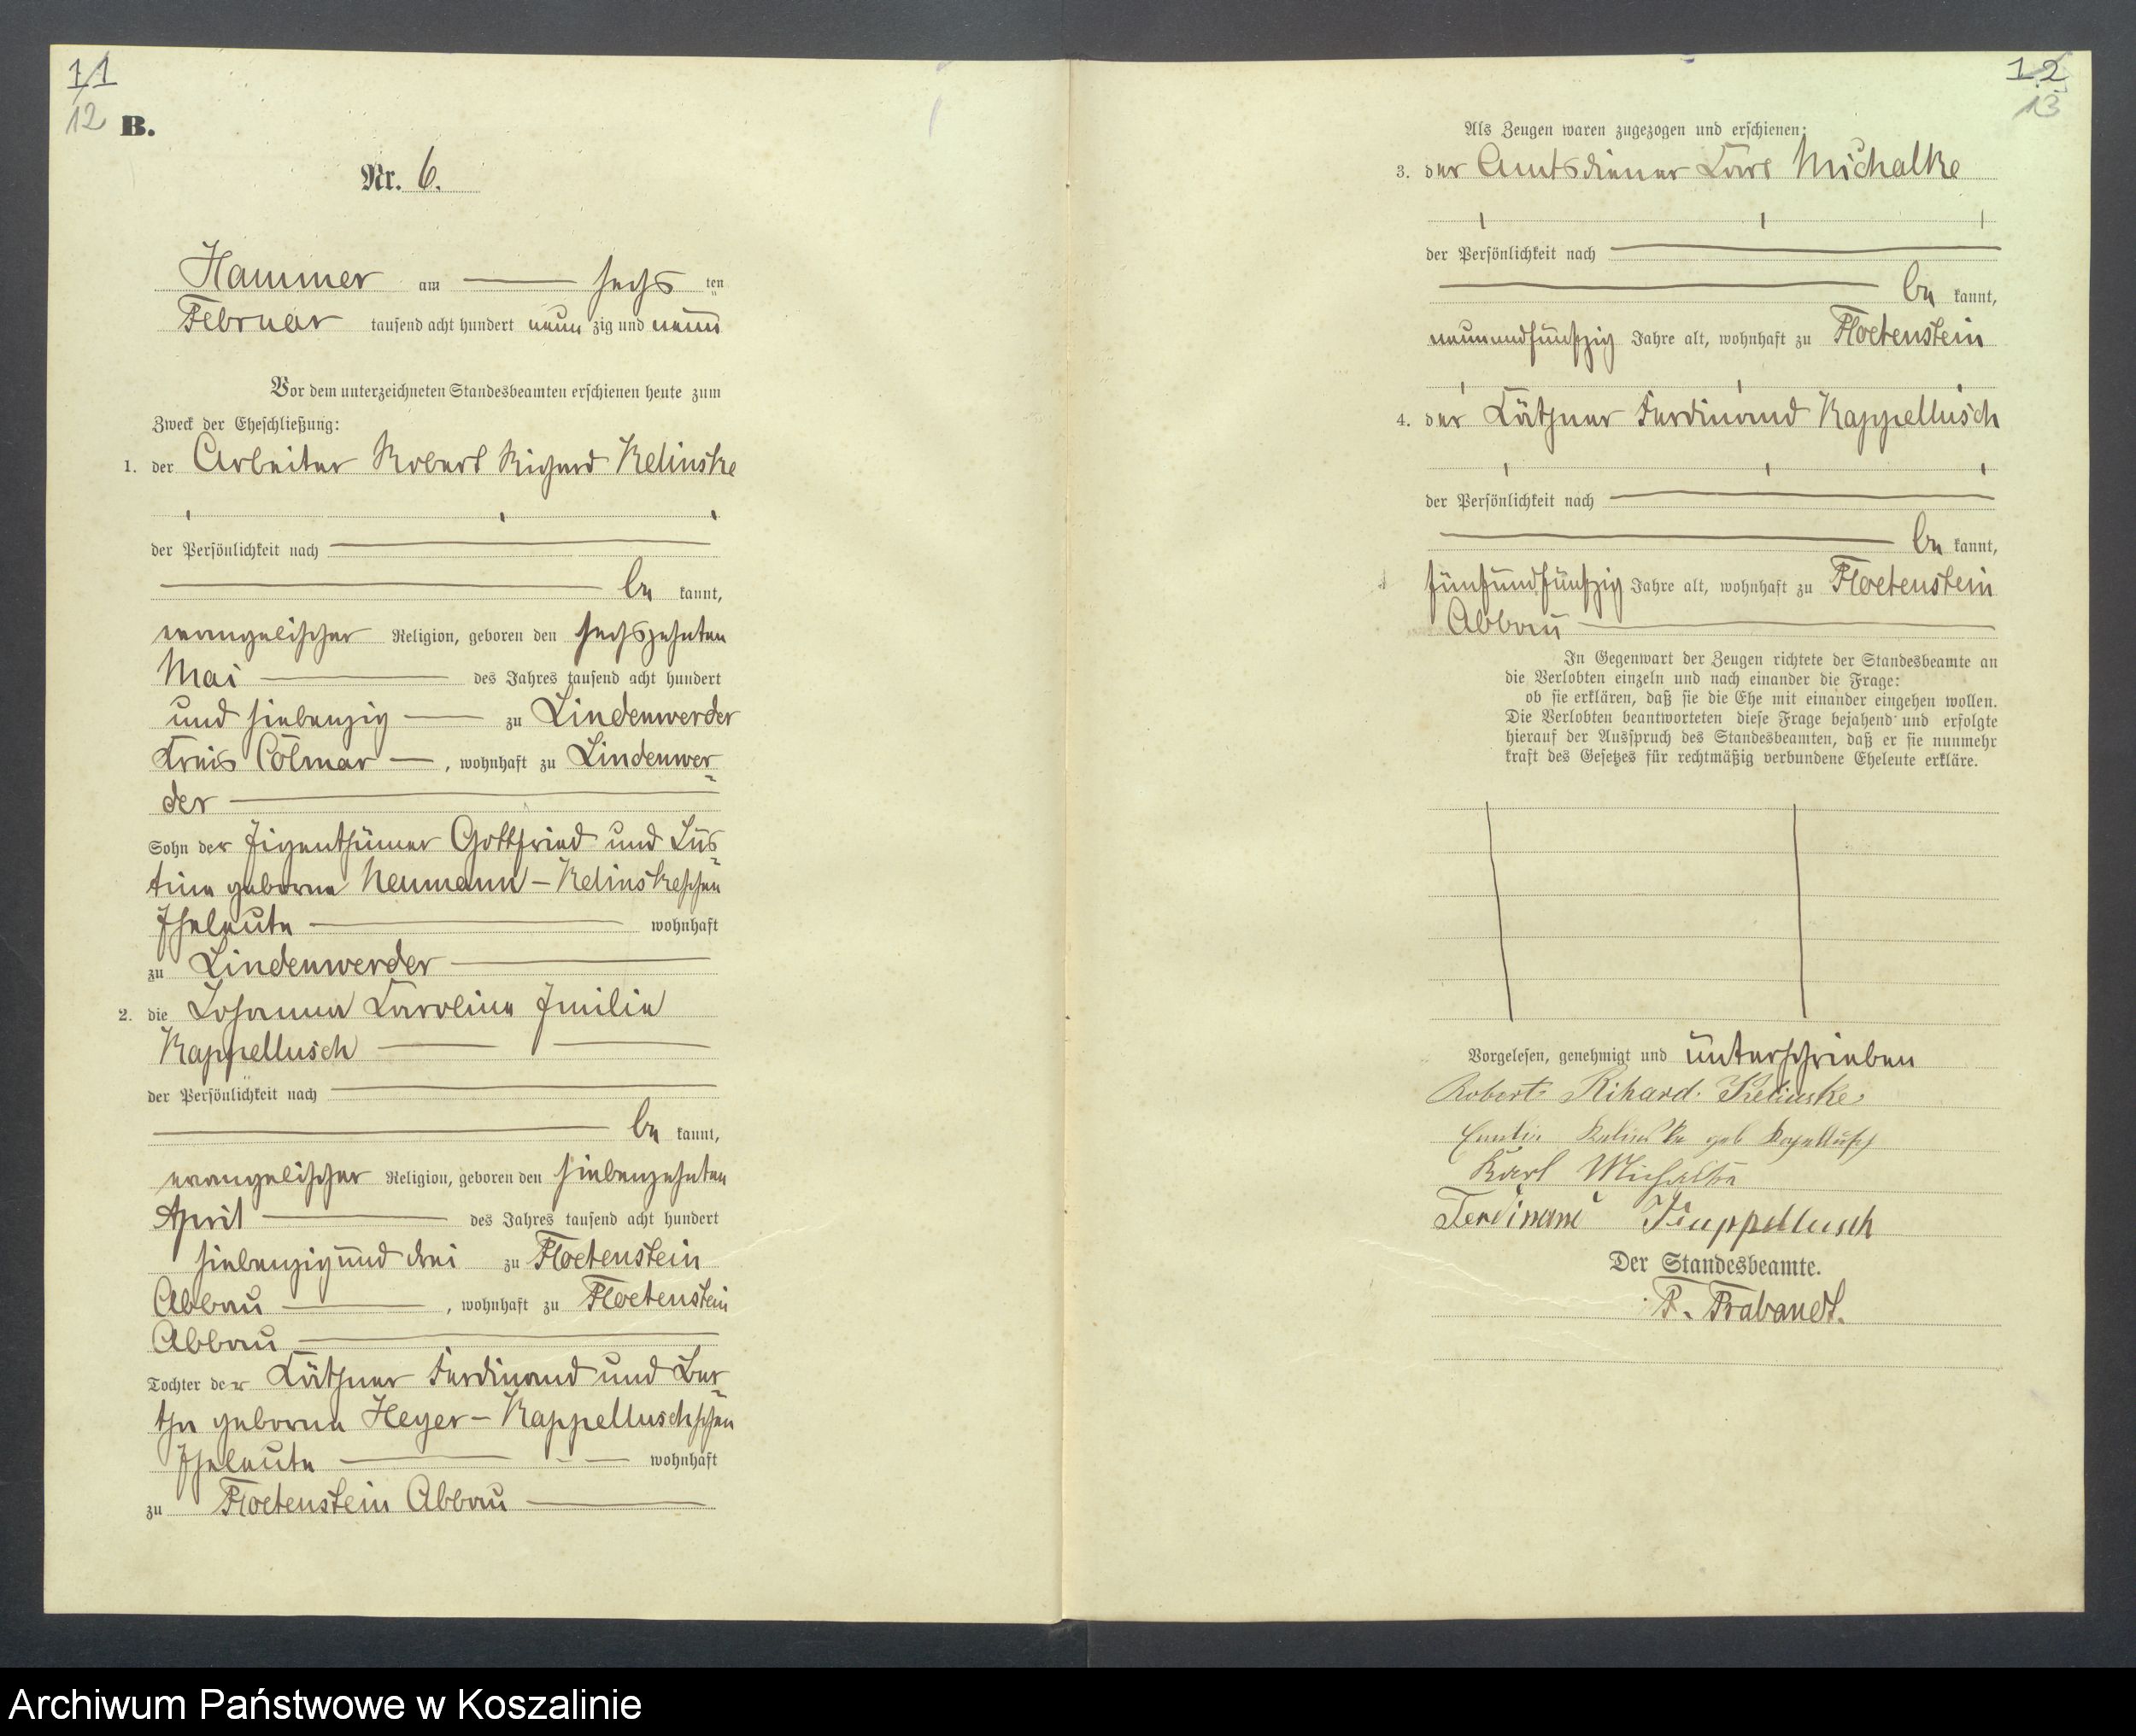 11
12
B.
Nr. 6.
Hammer am sechs ten
Februar tausend acht hundert neun zig und neun
Vor dem unterzeichneten Standesbeamten erschienen heute zum
Zweck der Eheschließung:
1. der Arbeiter Robert Richard Kelinske
der Persönlichkeit nach
be kannt,
evangelischer Religion, geboren den sechszehnten
Mai des Jahres tausend acht hundert
und siebenzig zu Lindenwerder
Kreis Colmar, wohnhaft zu Lindenwer-
der
Sohn der Eigenthümer Gottfried und Jus-
tine geborne Neumann - Kelinskeschen
Eheleute wohnhaft
zu Lindenwerder
2. die Johanna Karoline Emilie
Kappellusch
der Persönlichkeit nach
be kannt,
evangelischer Religion, geboren den siebenzehnten
April des Jahres tausend acht hundert
siebenzig und drei zu Floetenstein
Abbau, wohnhaft zu Floetenstein
Abbau
Tochter der Käthner Ferdinand und Ber-
tha geborne Heyer - Kappelluschschen
Eheleute wohnhaft
zu Floetenstein Abbau
12
13
Als Zeugen waren zugezogen und erschienen:
3. der Amtsdiener Karl Michalke
der Persönlichkeit nach
be kannt,
neunundfünfzig Jahre alt, wohnhaft zu Floetenstein
4. der Käthner Ferdinand Kappellusch
der Persönlichkeit nach
be kannt,
fünfundfünfzig Jahre alt, wohnhaft zu Floetenstein
Abbau
In Gegenwart der Zeugen richtete der Standesbeamte an
die Verlobten einzeln und nach einander die Frage:
ob sie erklären, daß sie die Ehe mit einander eingehen wollen.
Die Verlobten beantworteten diese Frage bejahend und erfolgte
hierauf der Ausspruch des Standesbeamten, daß er sie nunmehr
kraft des Gesetzes für rechtmäßig verbundene Eheleute erkläre.
Vorgelesen, genehmigt und unterschrieben
Robert Rihard Kelinske
Emilie Kelinske geb Kapellusch
Karl Michalke
Ferdinand Kappellusch
Der Standesbeamte.
F. Frabandt.
Archiwum Państwowe w Koszalinie